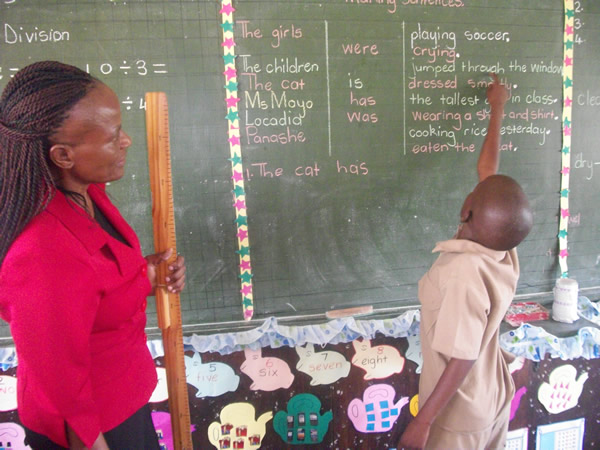 Division
10÷3=
÷4
Making Sentences.
The girls
were
The children
The cat
is
Ms Moyo
has
Locadia
was
Panashe
playing soccer.
crying.
jumped through the window
dressed
the tallest in class.
wearing a and shirt.
cooking rice yesterday.
eaten the
1. The cat has
2.
3.
4.
dry-
5
five
6
six
7
seven
8
eight